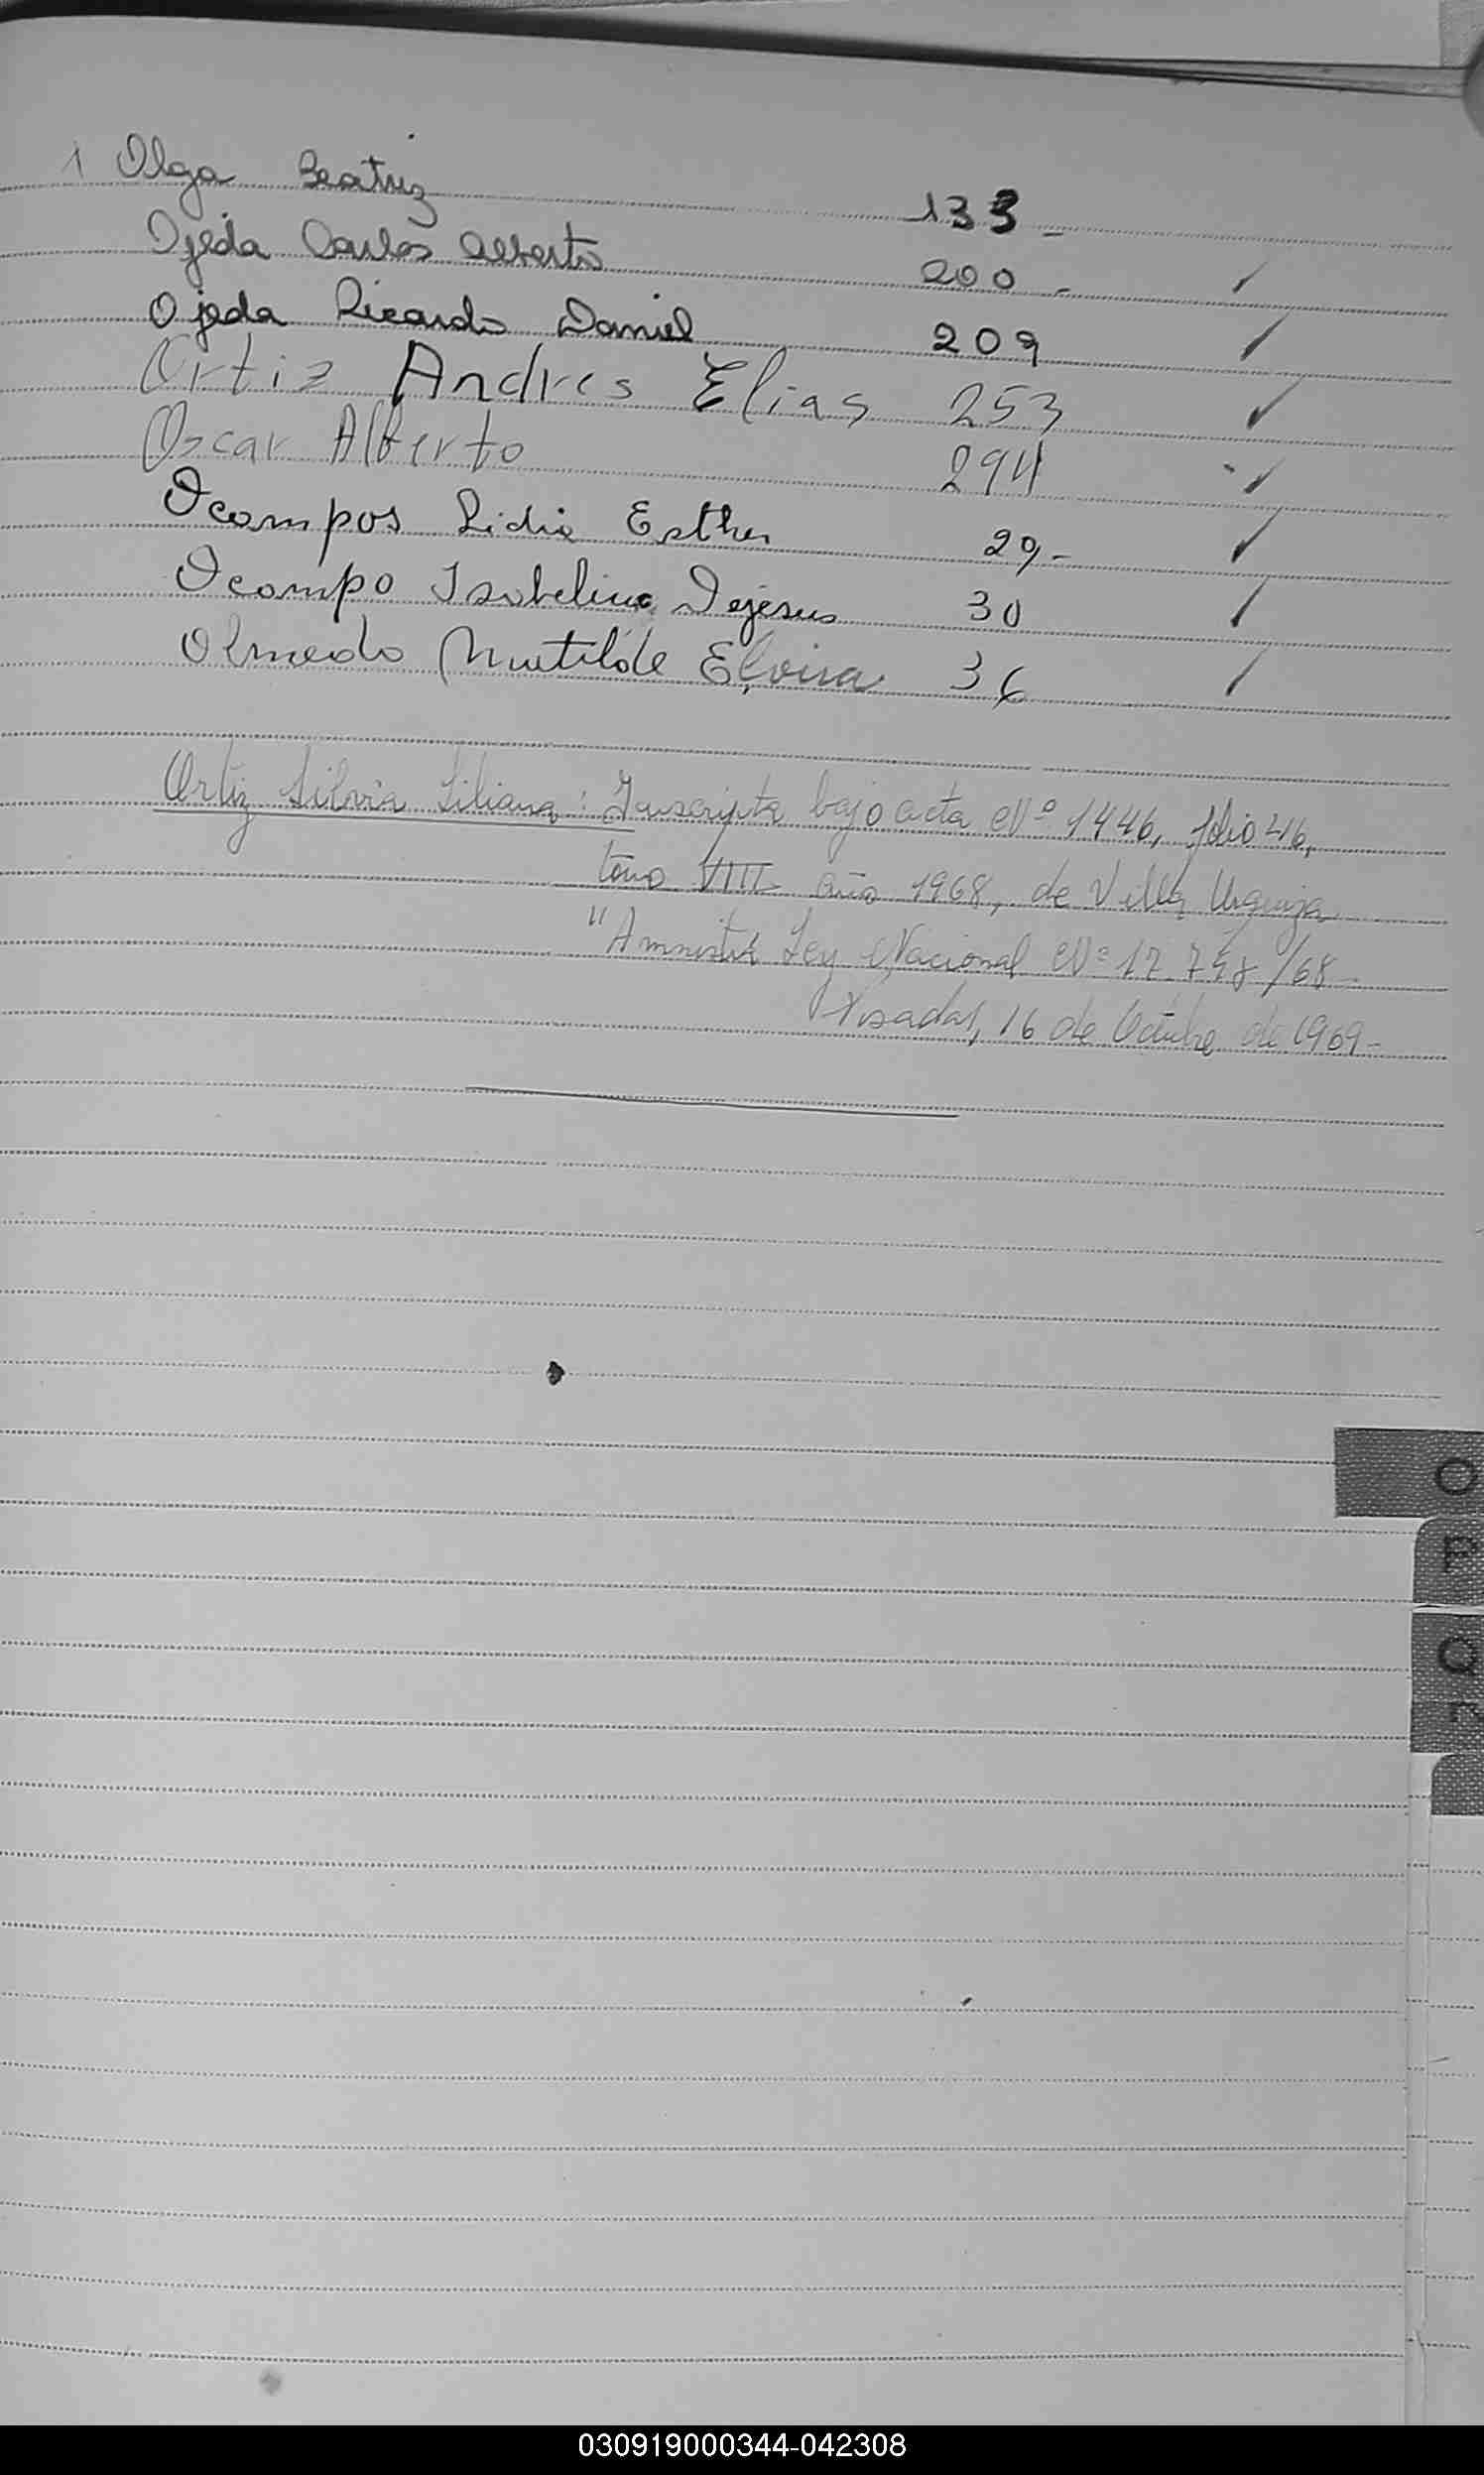 1 Olga Beatriz 133 -
Ojeda Carlos Alberto 200 - ✓
Ojeda Ricardo Daniel 209 ✓
Ortiz Andres Elias 253 ✓
Oscar Alberto 294 ✓
Ocampos Lidia Esther 29- ✓
Ocampo Isabelina Dejesus 30 ✓
Olmedo Matilde Elvira 36 ✓
Ortiz Silvia Liliana: Inscripta bajo acta Nº 1446, folio 216,
tomo VIII año 1968, de Villa Urquiza
"Amnistia Ley Nacional Nº 17.758/68-
Posadas, 16 de Octubre de 1969-
O
P
Q
030919000344-042308